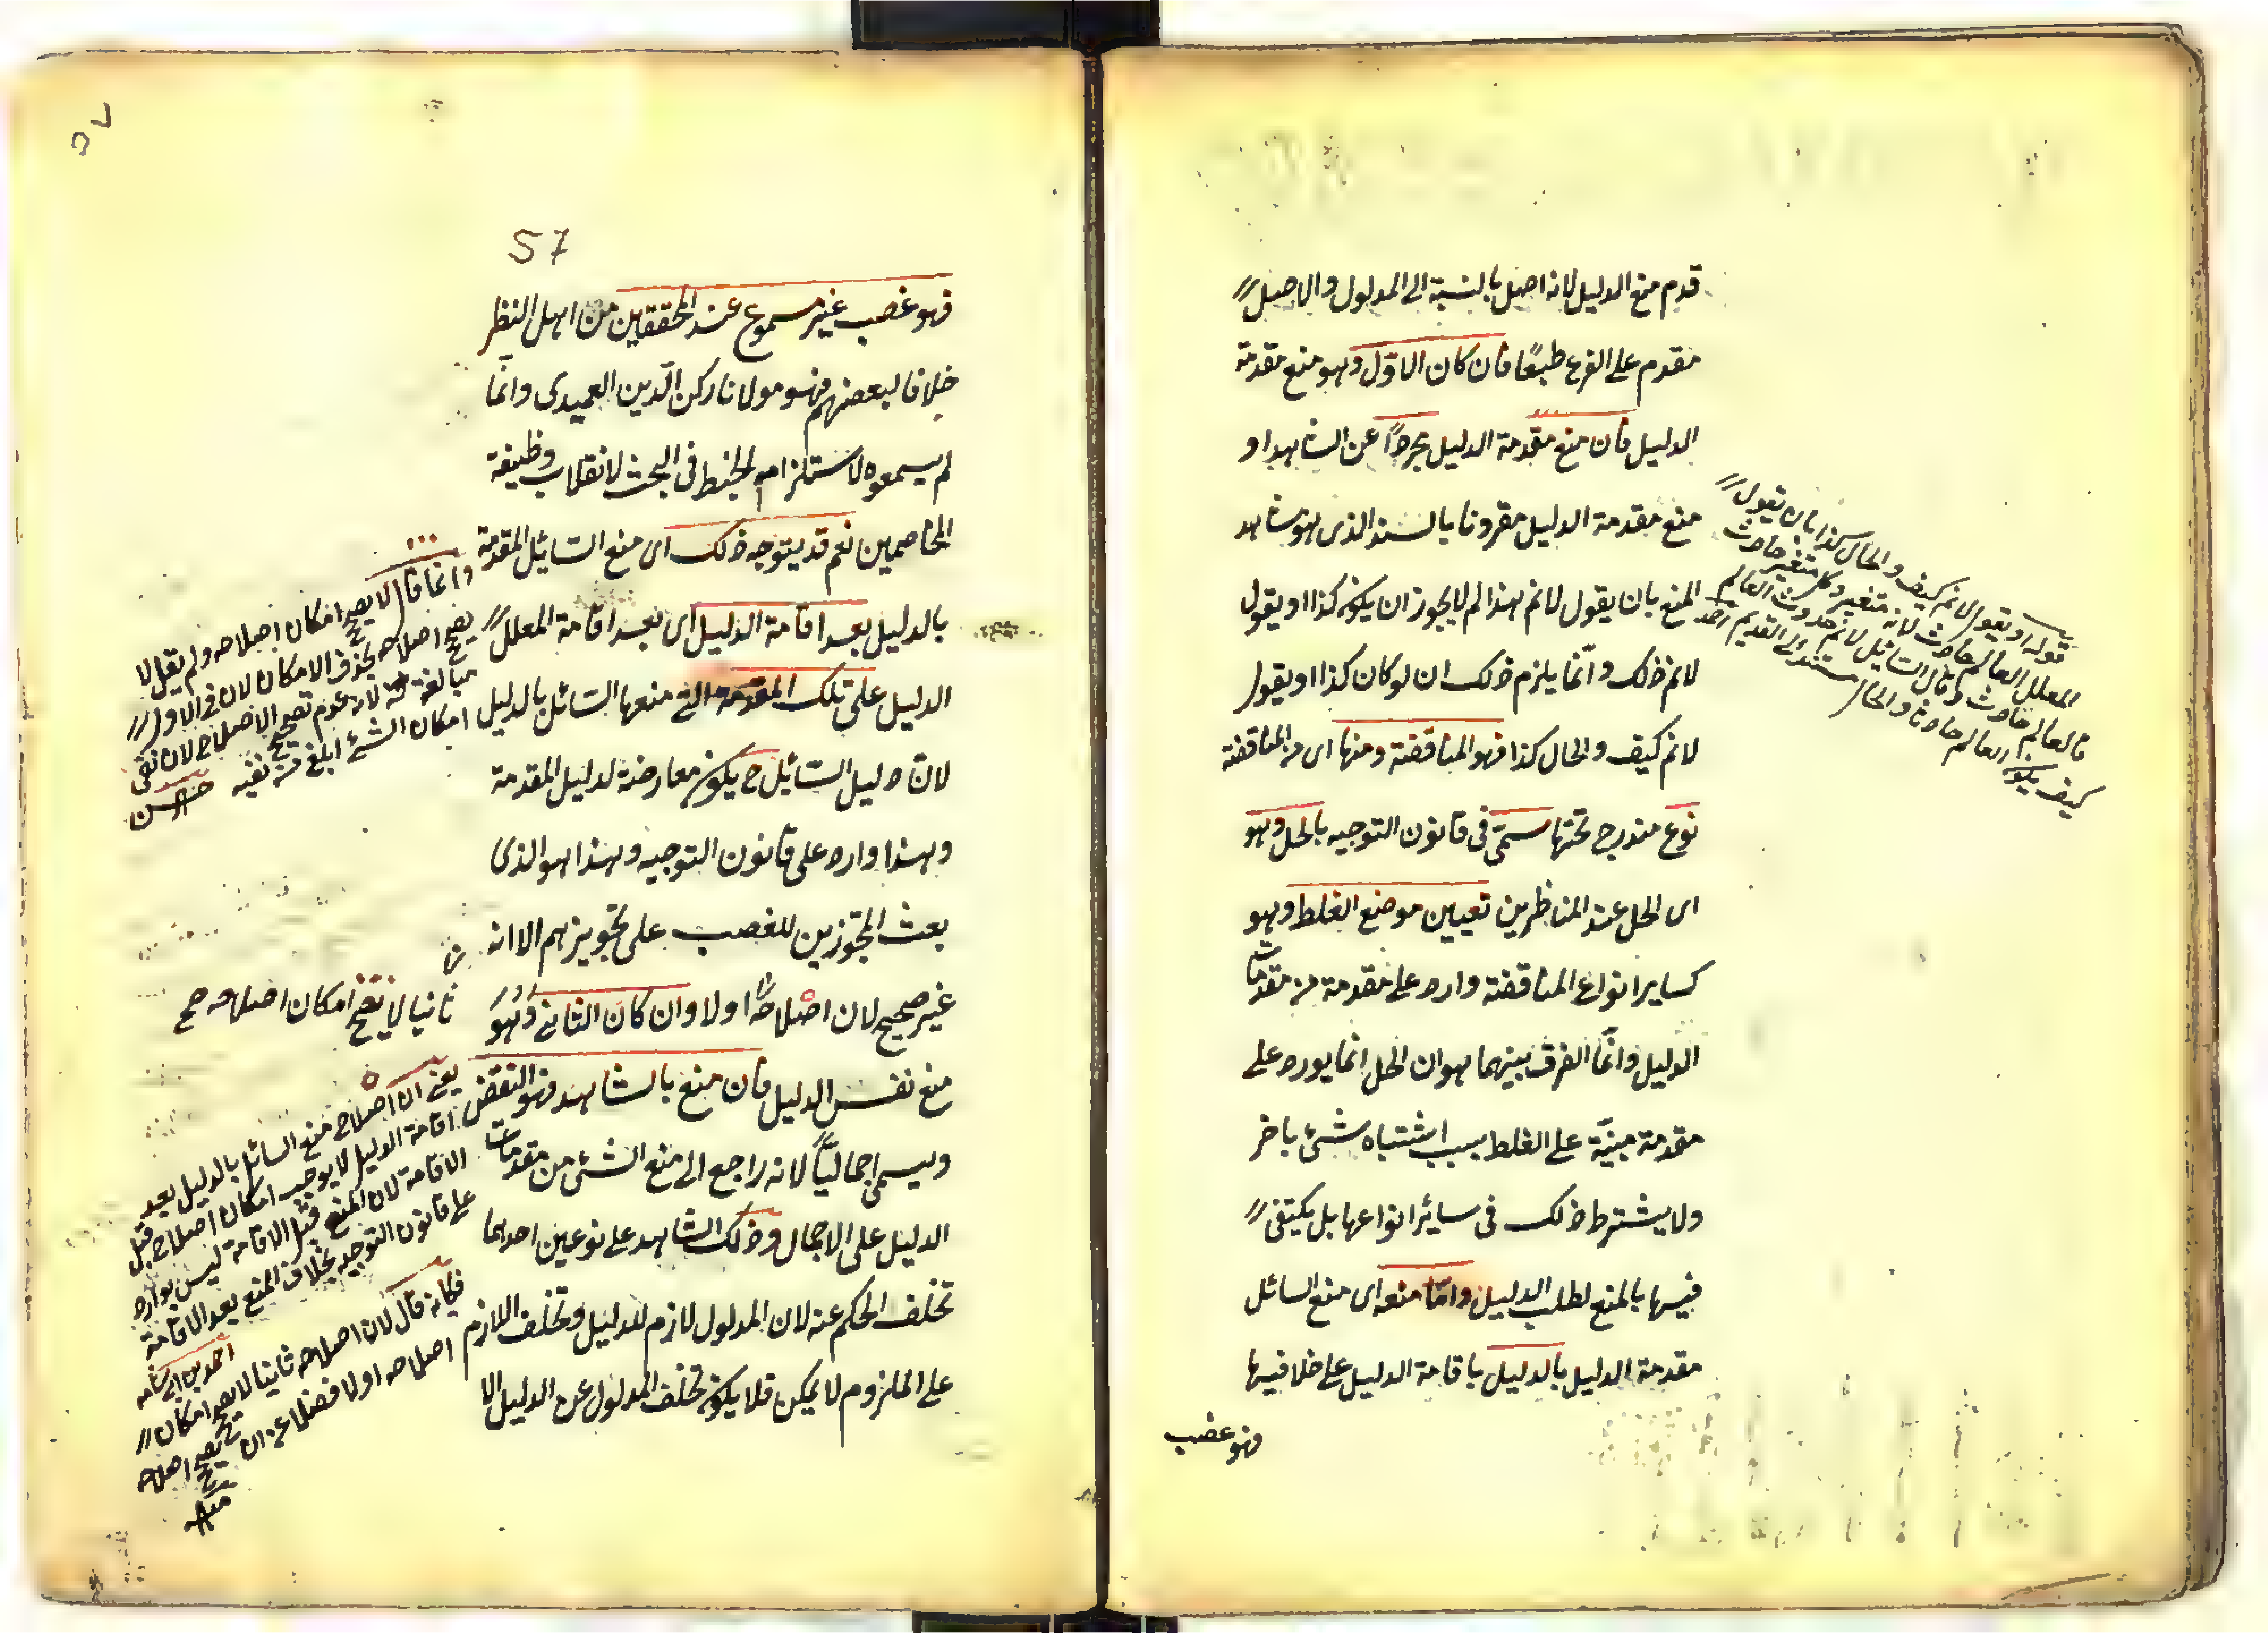 قدم منع الدليل لانه اصل بالنسبة الى المدلول والاصل
مقدم على الفرع طبعًا فان كان الاوّل وهو منع مقدمة
الدليل فان منع مقدمة الدليل مجردًا عن الشاهد او
منع مقدمة الدليل مقرونا بالسند الذى هو شاهد
المنع بان يقول لانم هذا لم لا يجوز ان يكون كذا او يقول
لانم ذلك وانّما يلزم ذلك ان لو كان كذا او يقول
لانم كيف والحال كذا فهو المناقضة ومنها اى من المناقضة
نوع مندرج تحتها سمّى فى قانون التوجيه بالحل وهو
اى الحل عند المناظرين تعيين موضع الغلط وهو
كساير انواع المناقضة وارد على مقدمة من مقدمات
الدليل وانّما الفرق بينهما هو ان الحل انما يورد على
مقدمة مبنيّة على الغلط بسبب اشتباه شئ باخر
ولا يشترط ذلك فى سائر انواعها بل يكتفى
فيها بالمنع لطلب الدليل وامّا منعه اى منع السائل
مقدمة الدليل بالدليل باقامة الدليل على خلافيها
فهو غصب
قوله او يقول لانم كيف والحال كذا بان يقول
المعلل العالم حادث لانه متغير وكل متغير حادث
فالعالم حادث وقال السائل لانم حدوث العالم
كيف يكون العالم حادثا والحال مستند الى القديم احمد
57
فهو غصب غير مسموع عند المحققين من اهل النظر
خلافا لبعضهم فهو مولانا ركن الدّين العميدى وانّما
لم يسمعوه لاستلزامه الخبط فى البحث لانقلاب وظيفة
المخاصمين نعم قد يتوجه ذلك اى منع السّائل المقدمة
بالدليل بعد اقامة الدليل اى بعد اقامة المعلل
الدليل على تلك المقدمة التى منعها السّائل بالدليل
لانّ دليل السّائل ح يكون معارضة لدليل المقدمة
وهذا وارد على قانون التوجيه وهذا هو الذى
بعث المجوّزين للغصب على تجويزهم الا انه
غير صحيح لان اصلاحه اولا وان كان الثانى وهو
منع نفس الدليل فان منع بالشاهد فهو النقض
ويسمى اجماليًّا لانه راجع الى منع الشئ من مقدمات
الدليل على الاجمال وذلك الشاهد على نوعين احدهما
تخلف الحكم عنه لان المدلول لازم للدليل وتخلف اللازم
على الملزوم لا يمكن فلا يكون تخلف المدلول عن الدليل الا
وانما قال لا يصح امكان اصلاحه ولم يقل لا
يصح اصلاحه بحذف الامكان لان فى الاول
مبالغة فى لازم عدم تصحيح الاصلاح لان نفى
امكان الشئ ابلغ من نفيه حسن
ثانيا لا يصحح امكان اصلاحه صح
يعنى ان اصلاح منع السائل بالدليل بعد
اقامة الدليل لا يوجب امكان اصلاح قبل
الاقامة لان المنع قبل الاقامة ليس بوارد
على قانون التوجيه بخلاف المنع بعد الاقامة
فكانه قال لان اصلاحه ثانيا لا يصحح امكان
اصلاحه اولا فضلا عن ان يصحح اصلاحه
منه